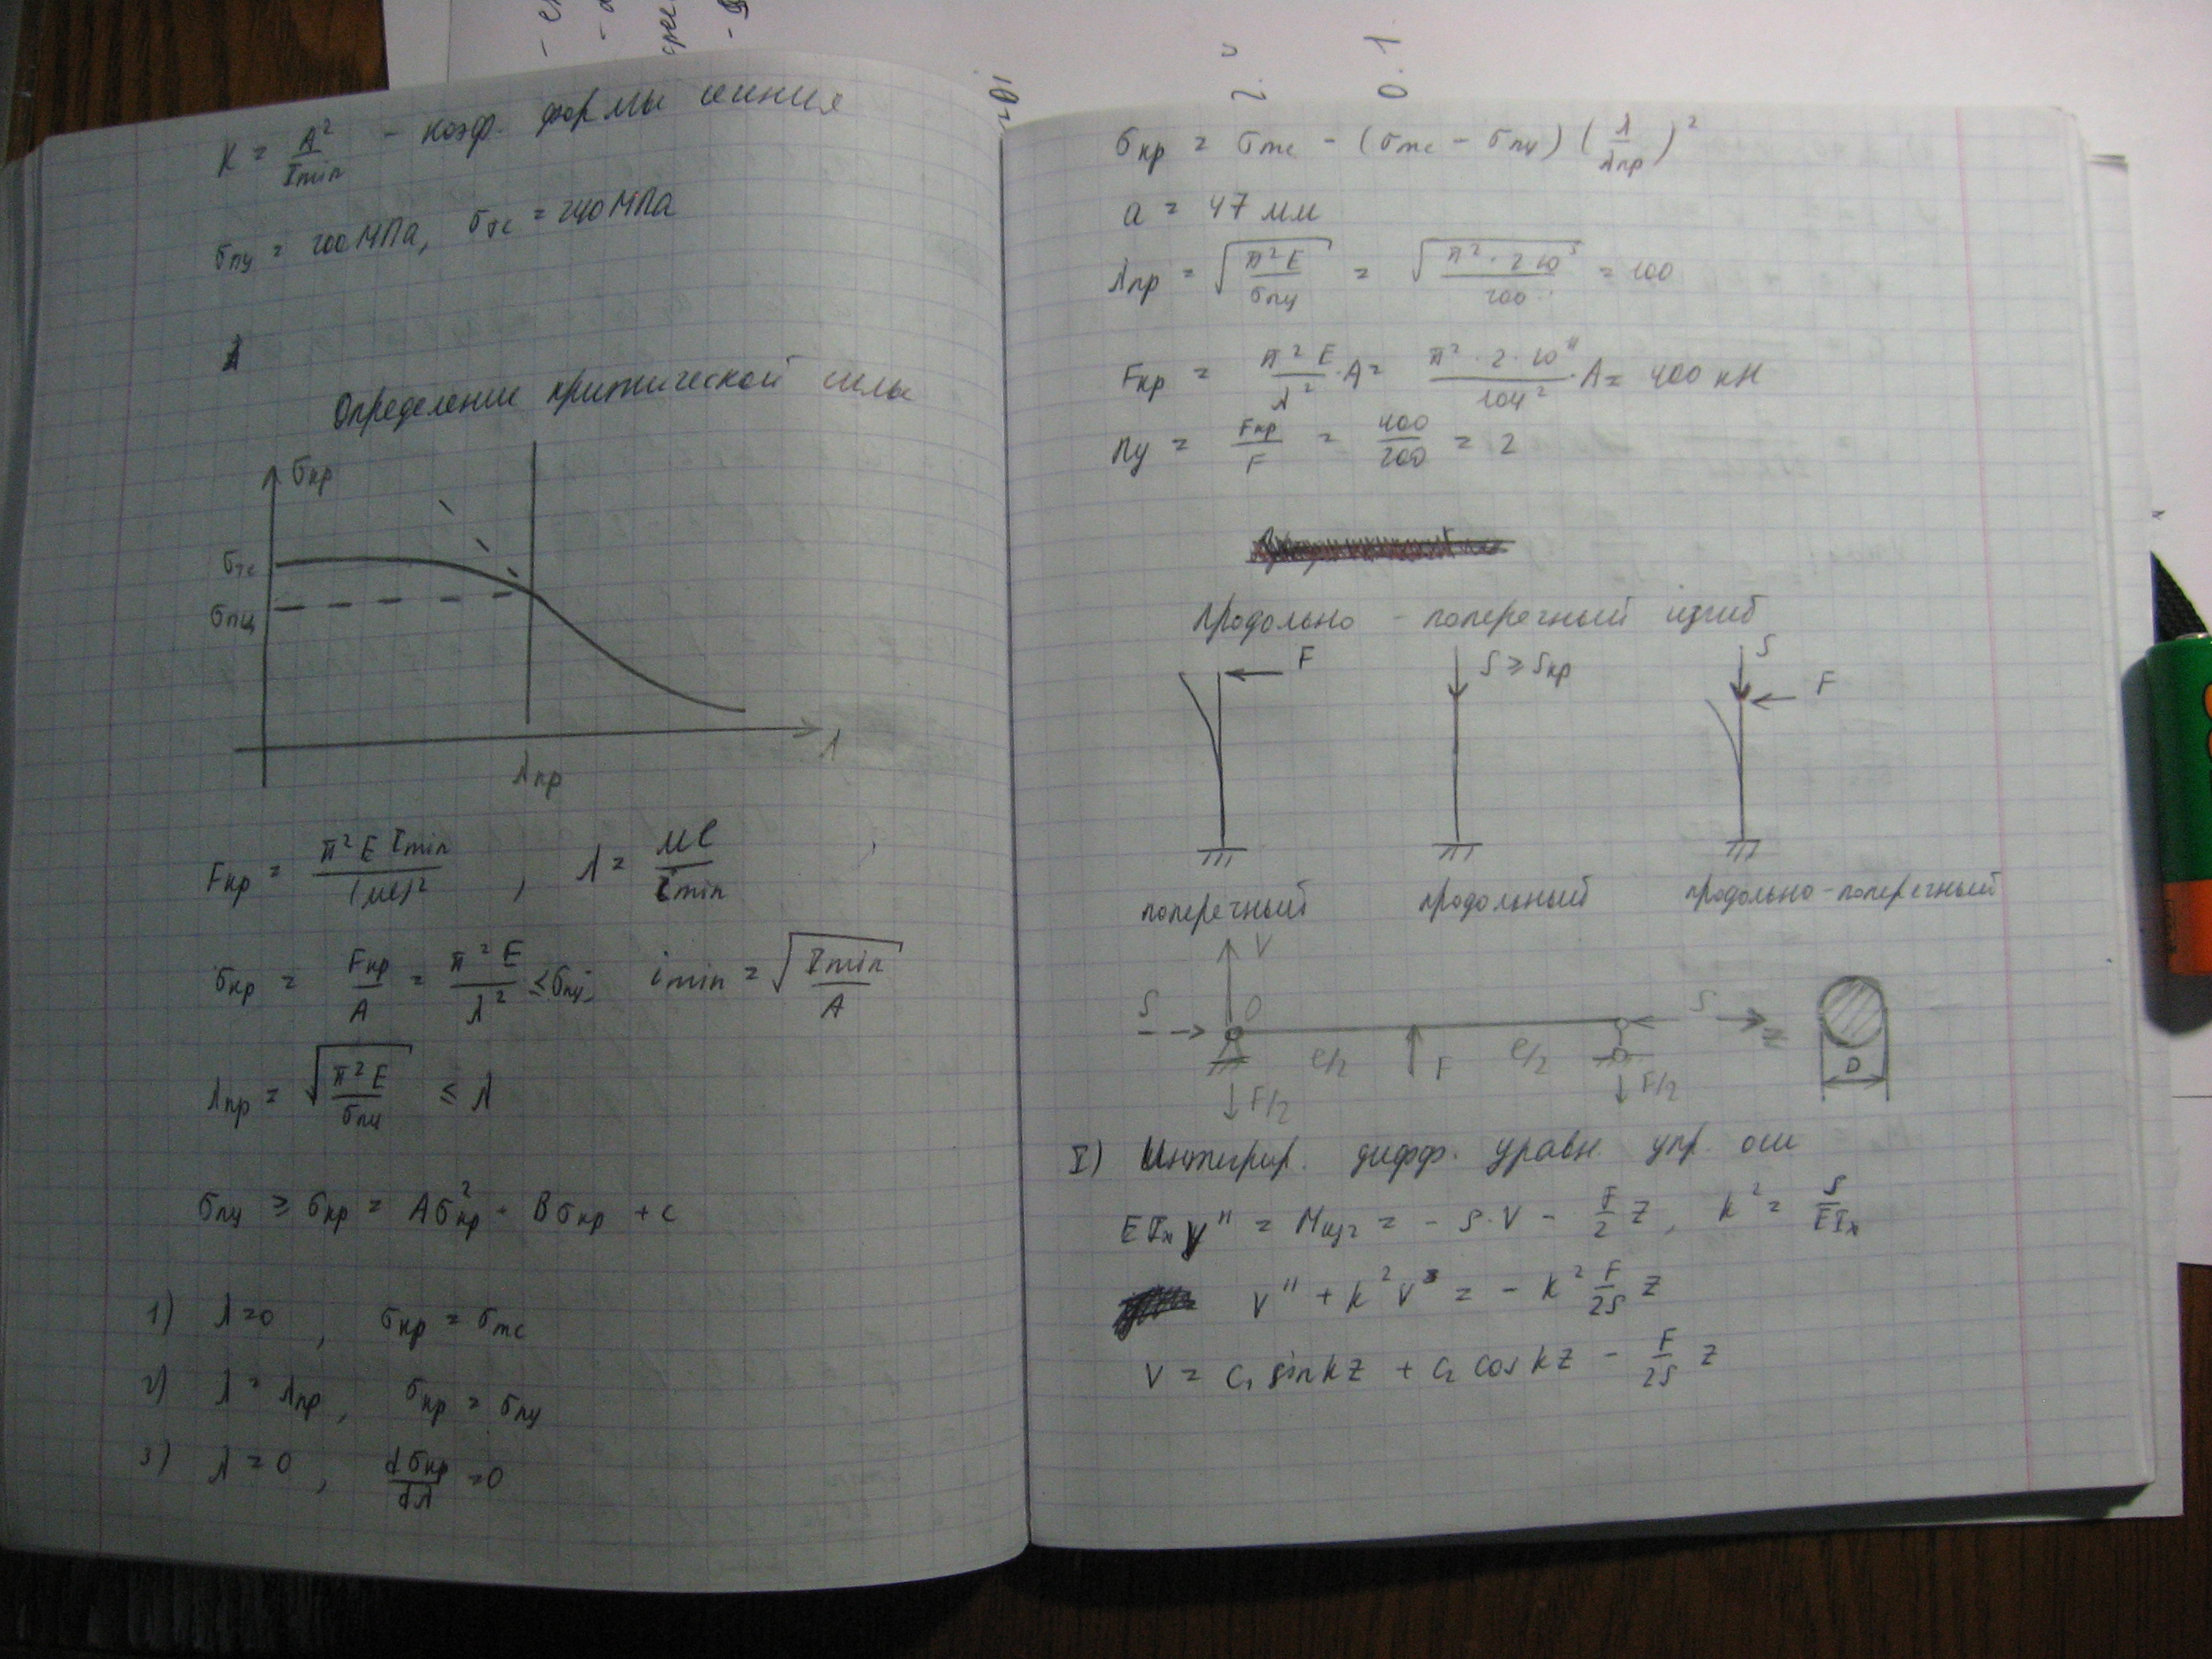 K = A²/Imin - коэф. формы сечения
σпц = 200 МПа, σтс = 240 МПа
Определение критической силы
σкр
σтс
σпц
λпр
λ
Fкр = π² E Imin/(μl)² , λ = μl/imin
σкр = Fкр/A = π² E/λ² ≤ σпц; imin = √(Imin/A)
λпр = √(π² E/σпц) ≤ λ
σпц ≥ σкр = Aσ²кр - Bσкр + c
1) λ = 0 , σкр = σтс
2) λ = λпр , σкр = σпц
3) λ = 0 , dσкр/dλ = 0
σкр = σтс - (σтс - σпц) (λ/λпр)²
a = 47 мм
λпр = √(π² E/σпц) = √(π² · 2 10⁵/200) = 100
Fкр = π² E/λ² · A = π² · 2 · 10¹¹/104² · A = 400 кН
nу = Fкр/F = 400/200 = 2
Продольно - поперечный изгиб
F
S ≥ Sкр
S
F
поперечный продольный продольно-поперечный
V
S O S
l/2 F l/2
F/2 F/2
D
I) Интегрир. дифф. уравн. упр. оси
E Ix V'' = Mизг = - S·V - F/2 z , k² = S/EIx
V'' + k² V = - k² F/2S z
V = C₁ sin kz + C₂ cos kz - F/2S z